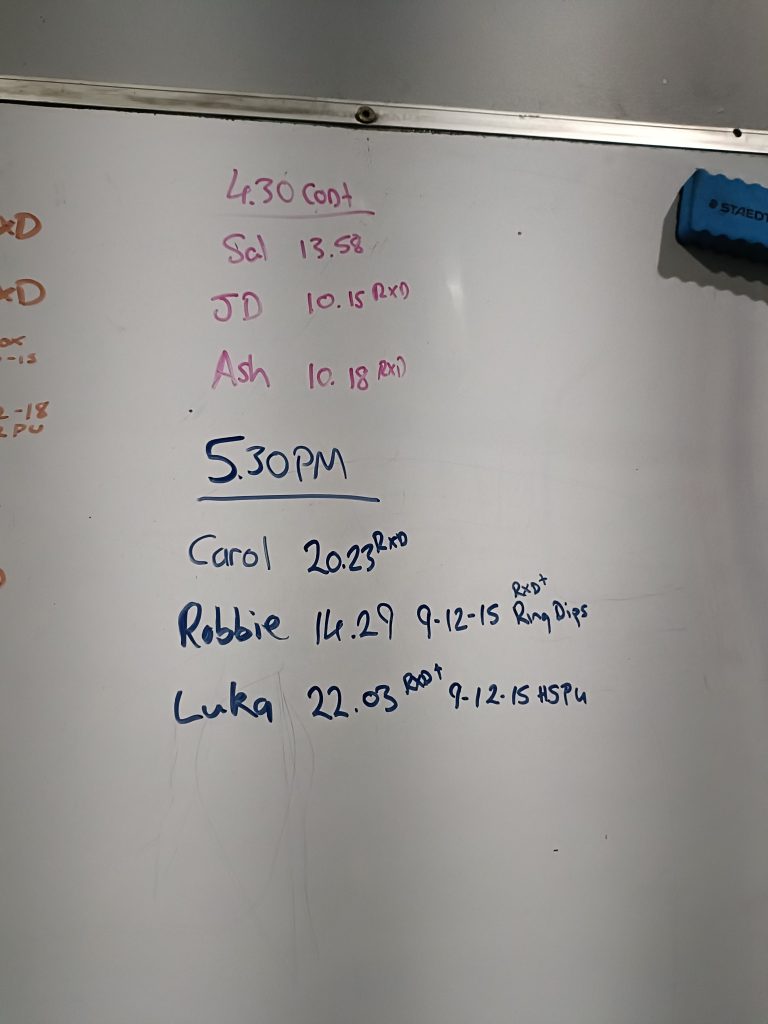 4.30 Cont
Sal 13.58
JD 10.15 RXD
Ash 10.18 RXD
5.30PM
Carol 20.23 RXD
Robbie 14.29 9-12-15 RXD+ Ring Dips
Luka 22.03 RXD+ 9-12-15 HSPU
XD
XD
-15
-18
PU
STAEDT